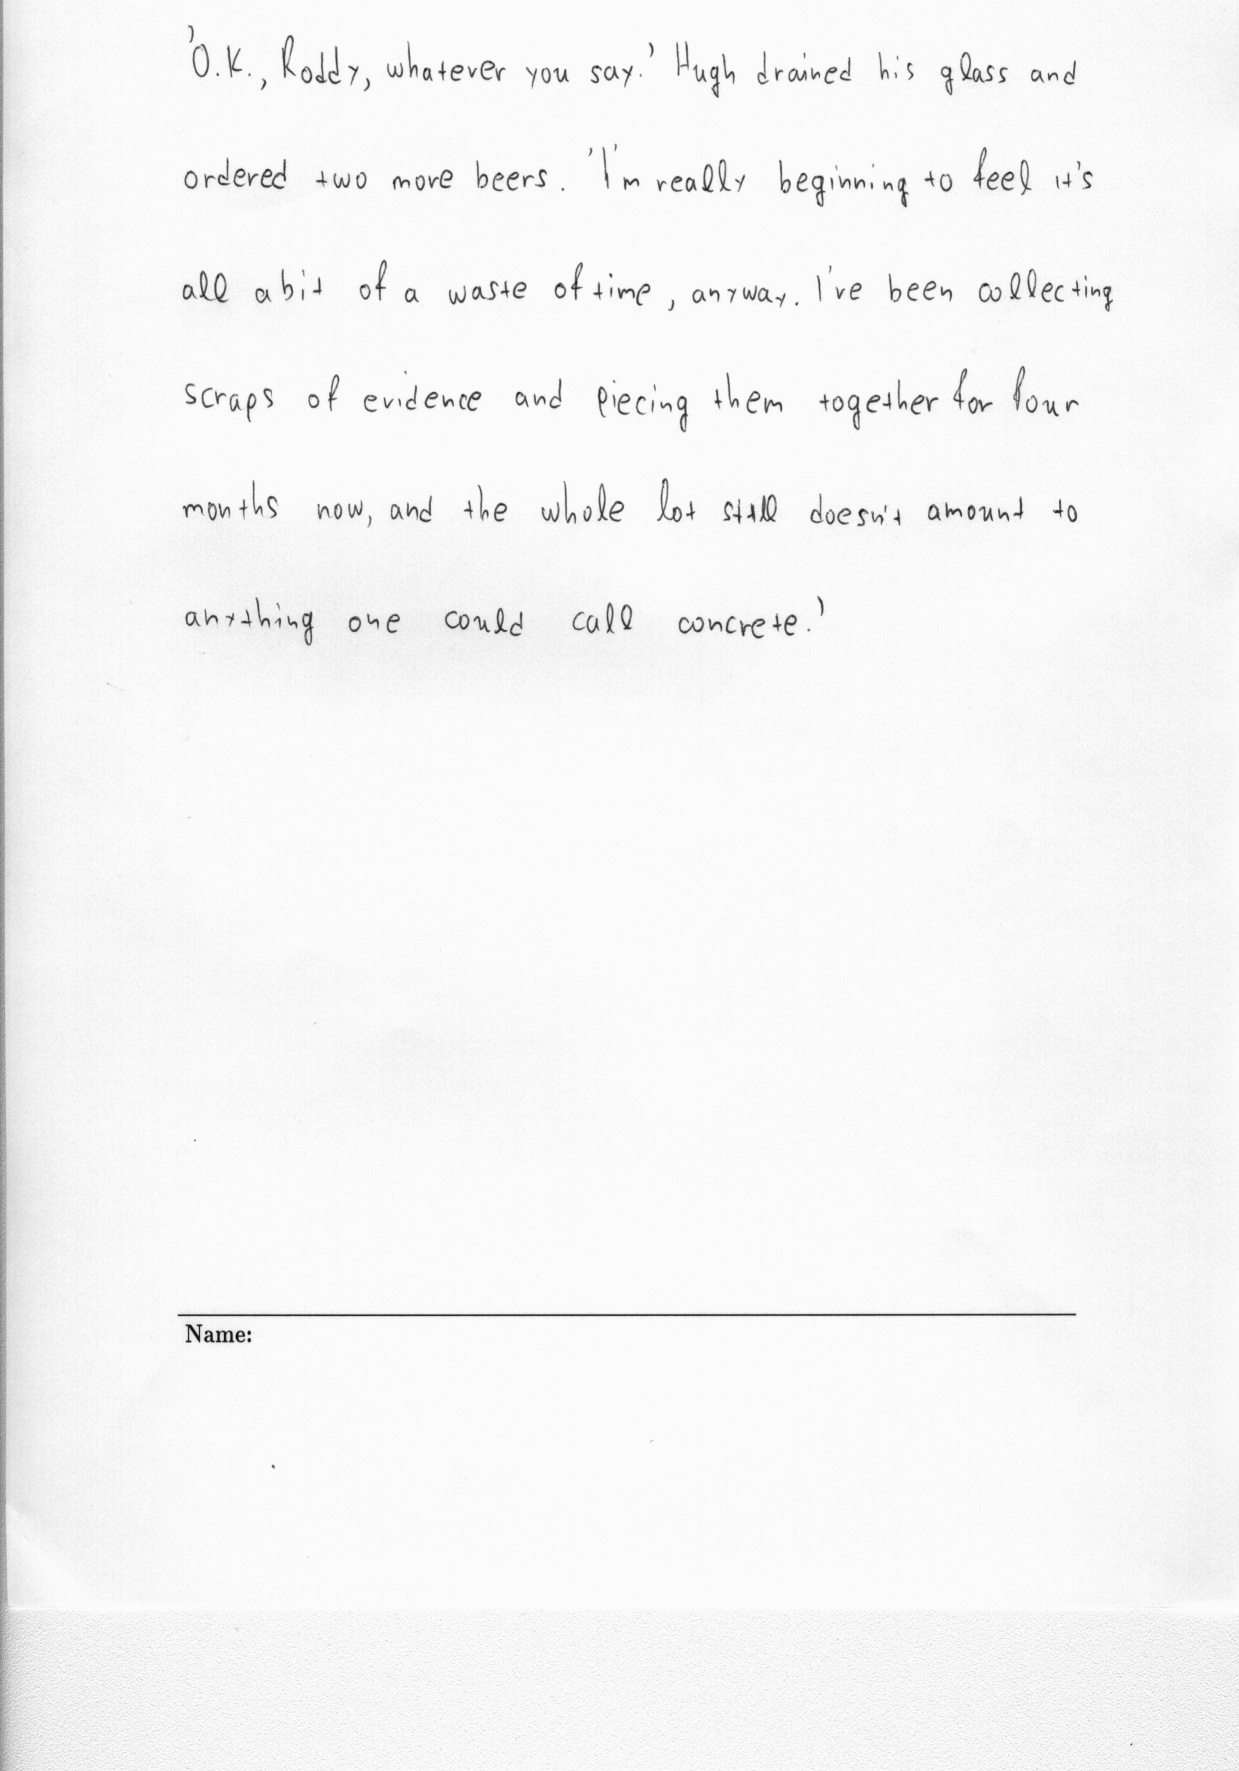 'O.K., Roddy, whatever you say.' Hugh drained his glass and
ordered two more beers. 'I'm really beginning to feel it's
all a bit of a waste of time, anyway. I've been collecting
scraps of evidence and piecing them together for four
months now, and the whole lot still doesn't amount to
anything one could call concrete.'
Name: